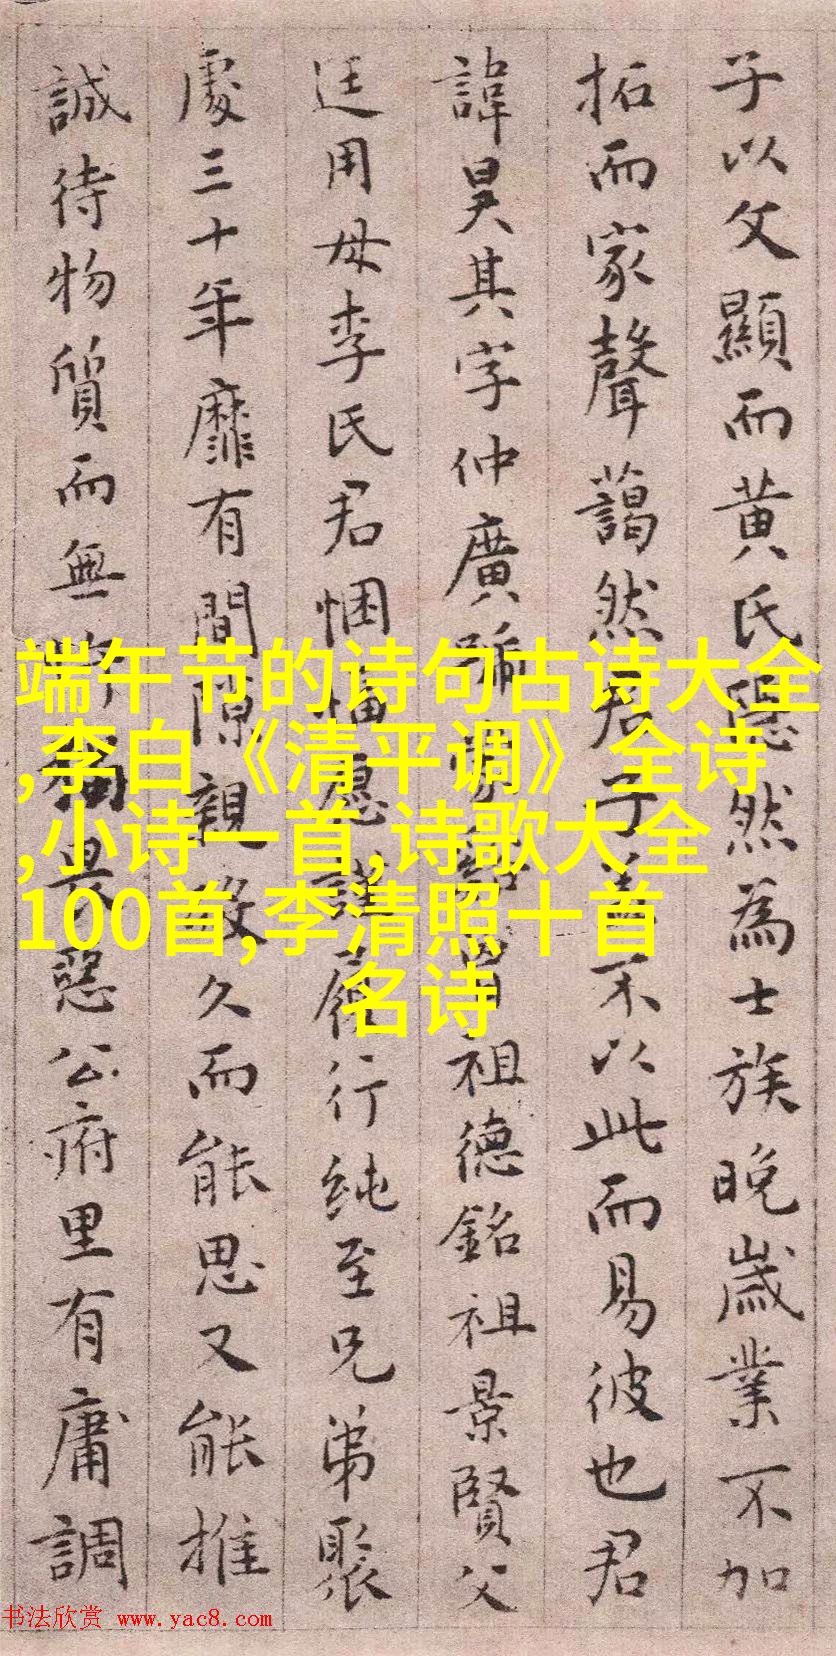 子以父顯而黄氏隱然為士族晚歲業不加
拓而家聲藹然君子不以此而易彼也君
諱昊其字仲廣號祖德銘祖景賢父
廷用母李氏君悃愊愿謹履行純至兄弟聚
處三十年靡有間隙親殁久而能思又能推
誠待物質而無畏惡公府里有庸調
端午节的诗句古诗大全
,李白《清平调》全诗
,小诗一首,诗歌大全
100首,李清照十首
名诗
书法欣赏 www.yac8.com